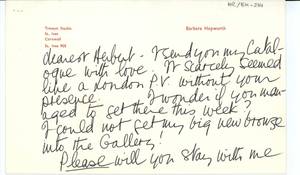 Trewyn Studio
St. Ives
Cornwall
Barbara Hepworth
dearest Herbert - I send you my Catal-
ogue with love. It scarcely seemed
like a London P.V. without your
presence. I wonder if you man-
aged to get there this week?
I could not get my big new bronze
into the Gallery!
Please will you stay with me